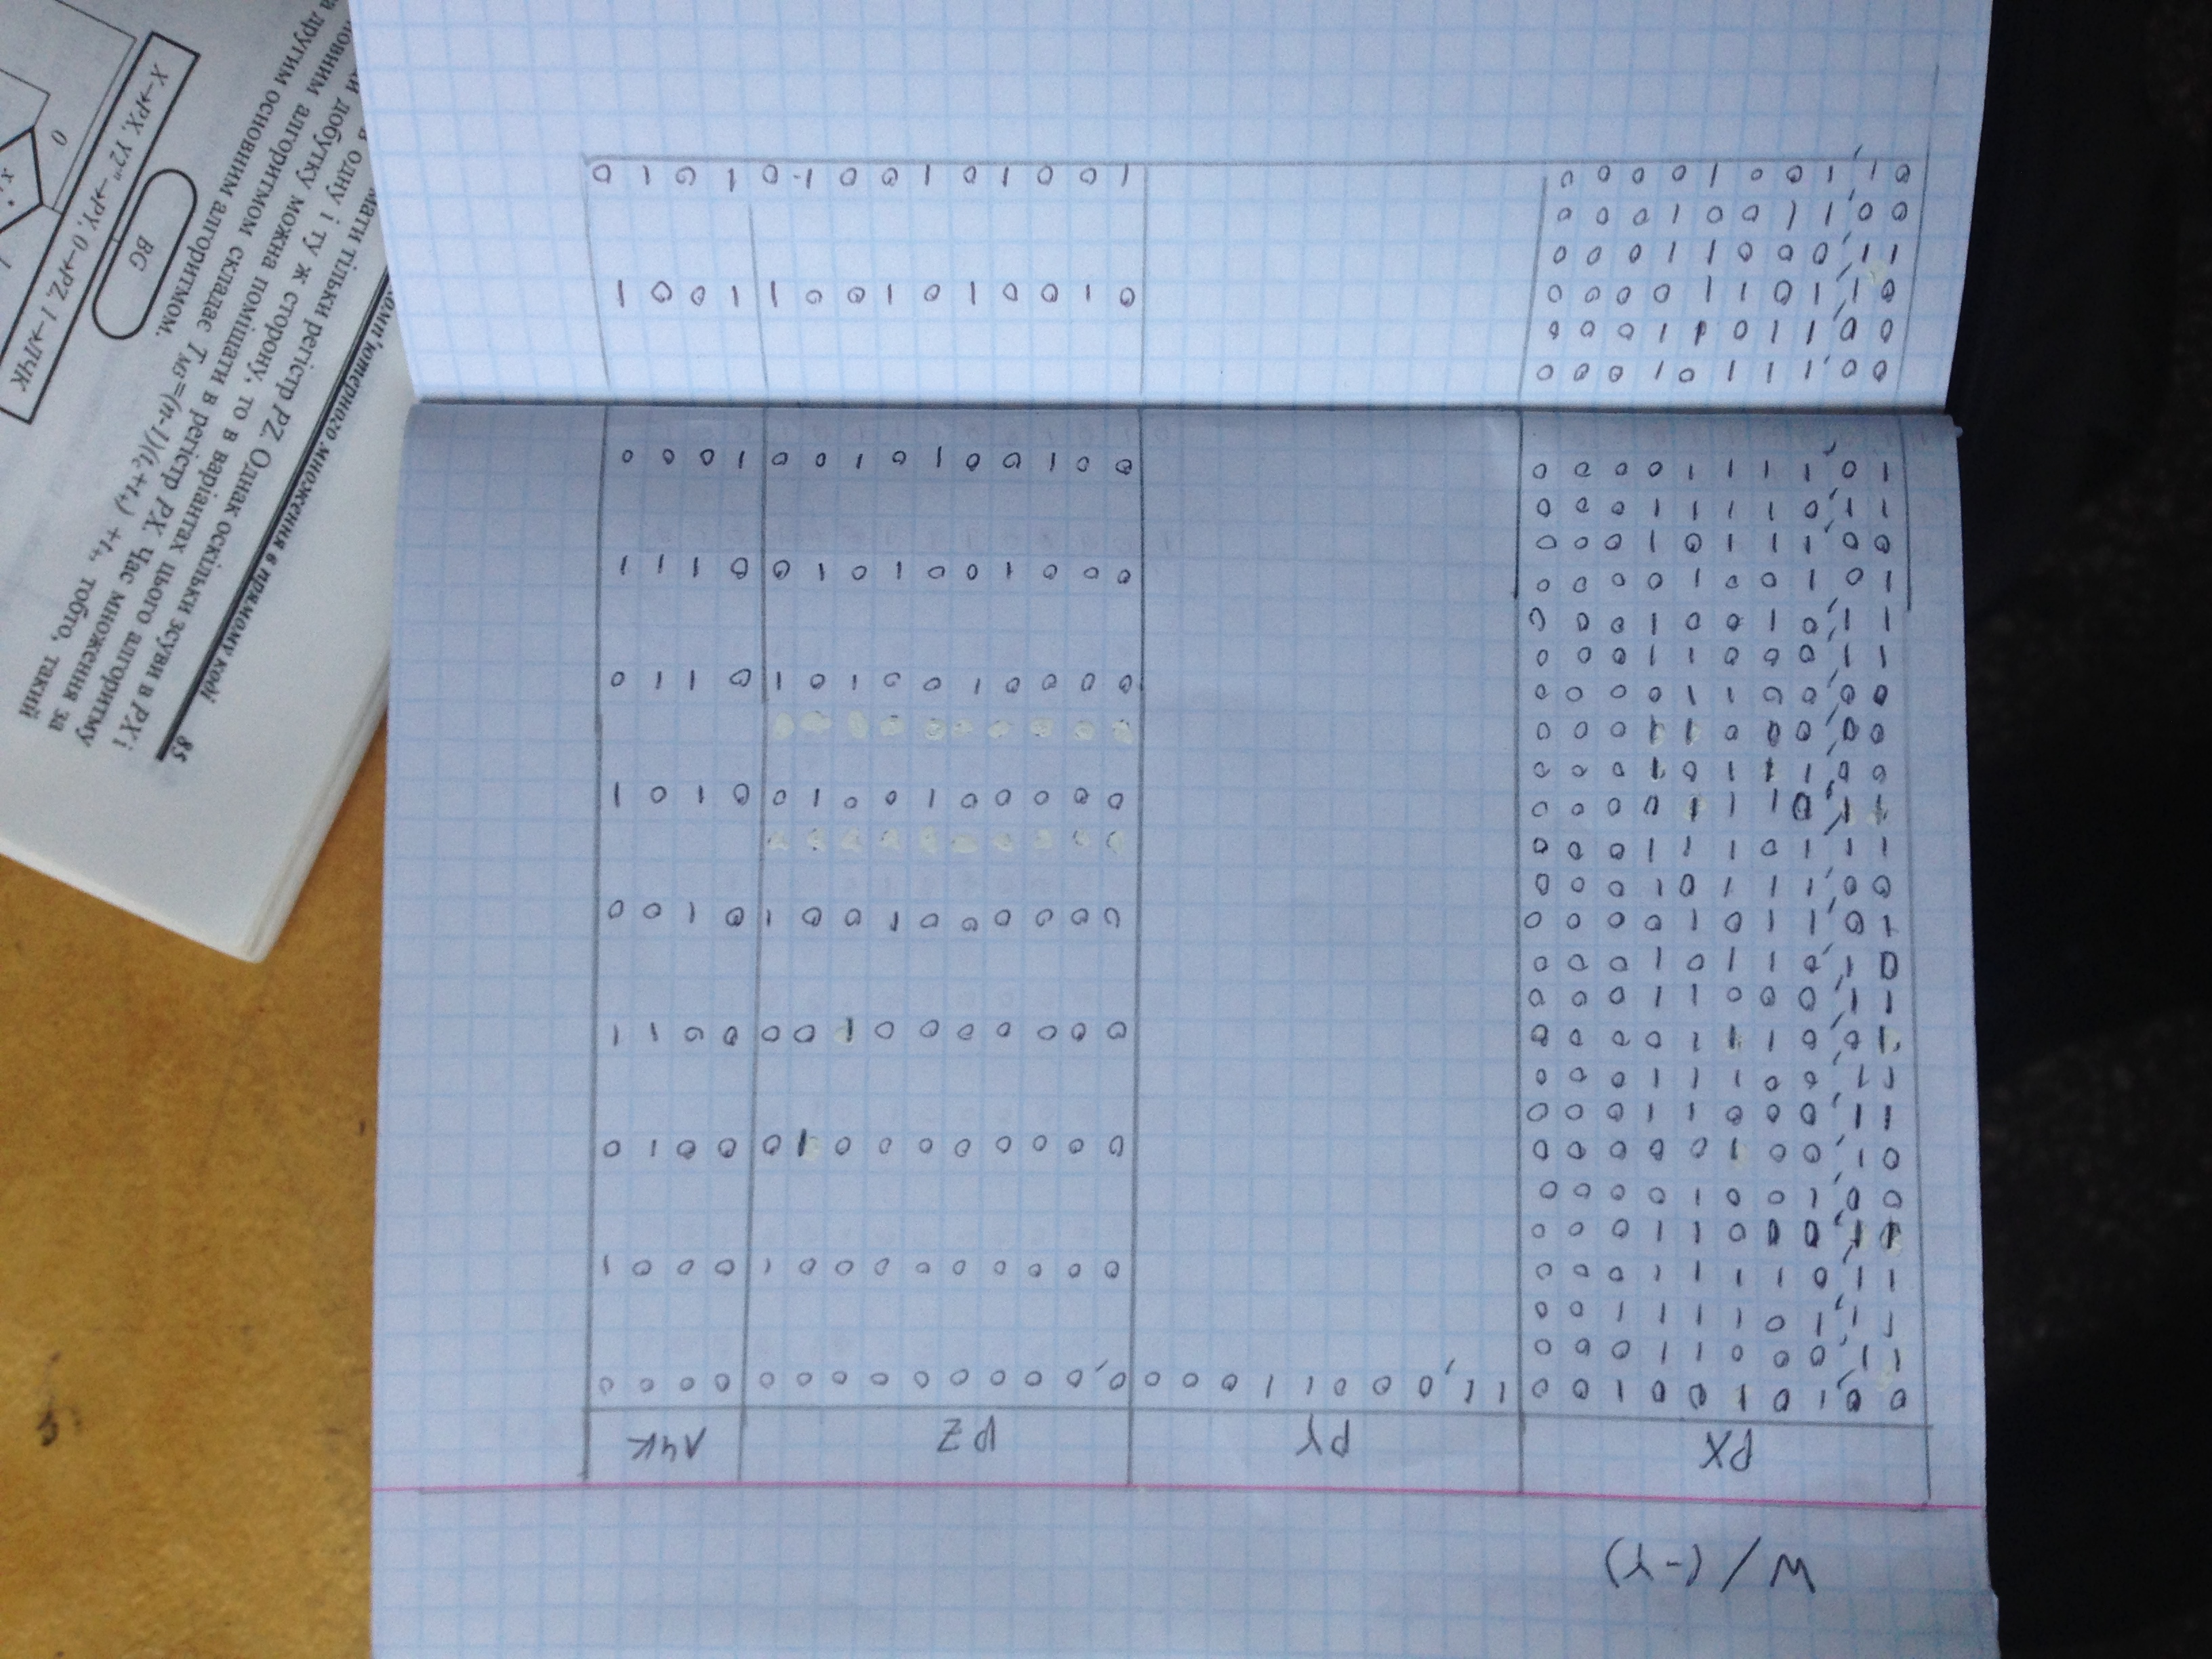 W / (-Y)
PX PY PZ ЛЧК
00,10100100 11,00011000 0,000000000 0000
11,00011000
11,10111100
11,01111000 0000000001 0001
11,00011000
00,10010000
01,00100000 0000000010 0010
11,00011000
11,00111000
10,01110000 0000000100 0011
11,00011000
01,01101000
10,11010000 0000001001 0100
00,11101000
11,10111000
11,01110000 0000010010 0101
00,11101000
00,00011000
00,00110000 0000100101 0110
11,00011000
11,01001000
10,10010000 0001001010 0111
00,11101000
11,01111000
10,11110000 0010010100 1000
00,11101000
00,11011000
01,10110000 0100101001 1001
11,00011000
00,11001000
01,10010000 1001010010 1010
комп'ютерного множення в прямому коді 85
мати тільки регістр PZ. Однак оскільки зсуви в PX і
в одну і ту ж сторону, то в варіантах цього алгоритму
добутку можна поміщати в регістр PX. Час множення за
основним алгоритмом складає Tмз=(n-1)(tc+t+) +t+, тобто, такий
а другим основним алгоритмом.
BG
X→PX, Y2ⁿ→PY, 0→PZ, 1→ЛЧК
0